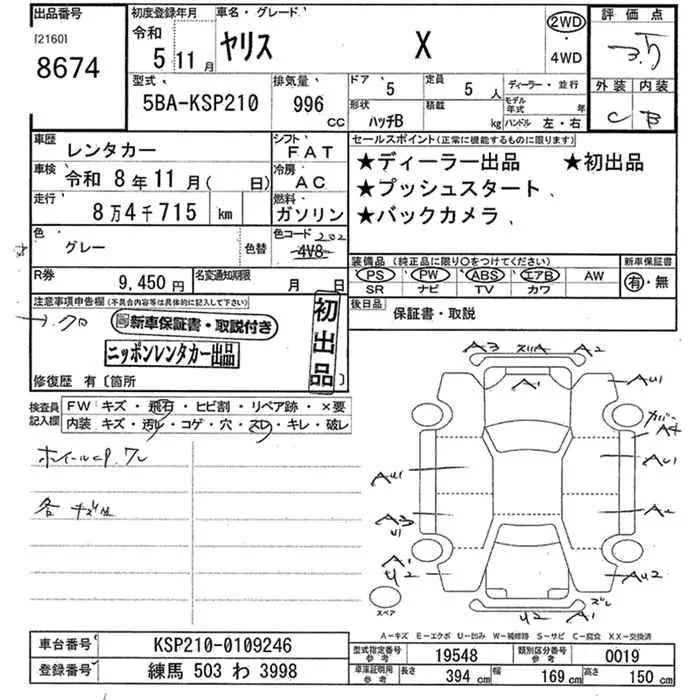 出品番号
[2160]
8674
初度登録年月
令和
5年11月
車名・グレード
ヤリス X
2WD
・
4WD
評価点
3.5
外装 内装
C B
型式
5BA-KSP210
排気量
996
cc
ドア 5
定員 5人
ディーラー・並行
形状
ハッチB
積載
kg
モデル年式 年
ハンドル 左・右
車歴
レンタカー
シフト
FAT
車検
令和 8年11月( 日)
冷房
AC
走行
8万4千715 km
燃料
ガソリン
セールスポイント(正常に機能するものに限ります)
★ディーラー出品 ★初出品
★プッシュスタート
★バックカメラ
色
グレー
色替
色コード 202
4V8
装備品(純正品に限り○をつけてください)
PS PW ABS エアB AW
SR ナビ TV カワ
新車保証書
有・無
R券
9,450円
名変通知期限
月 日
後日品
保証書・取説
注意事項申告欄(不具合内容等は具体的に記入して下さい)
新車保証書・取説付き
ニッポンレンタカー出品
初出品
修復歴 有〔箇所
検査員記入欄
FW キズ・飛石・ヒビ割・リペア跡・×要
内装 キズ・汚レ・コゲ・穴・スレ・キレ・破レ
A3
A2
A1
AU1
カバー
A4
AU1
AU1
A2
A3
U1
A1
U2
AU2
U2
A1
スペア
A-キズ E-エクボ U-凹み W-補修跡 S-サビ C-腐食 XX-交換済
車台番号
KSP210-0109246
登録番号
練馬 503 わ 3998
型式指定番号
参考
19548
類別区分番号
参考
0019
車庫証明用
参考
長さ
394 cm
幅
169 cm
高さ
150 cm